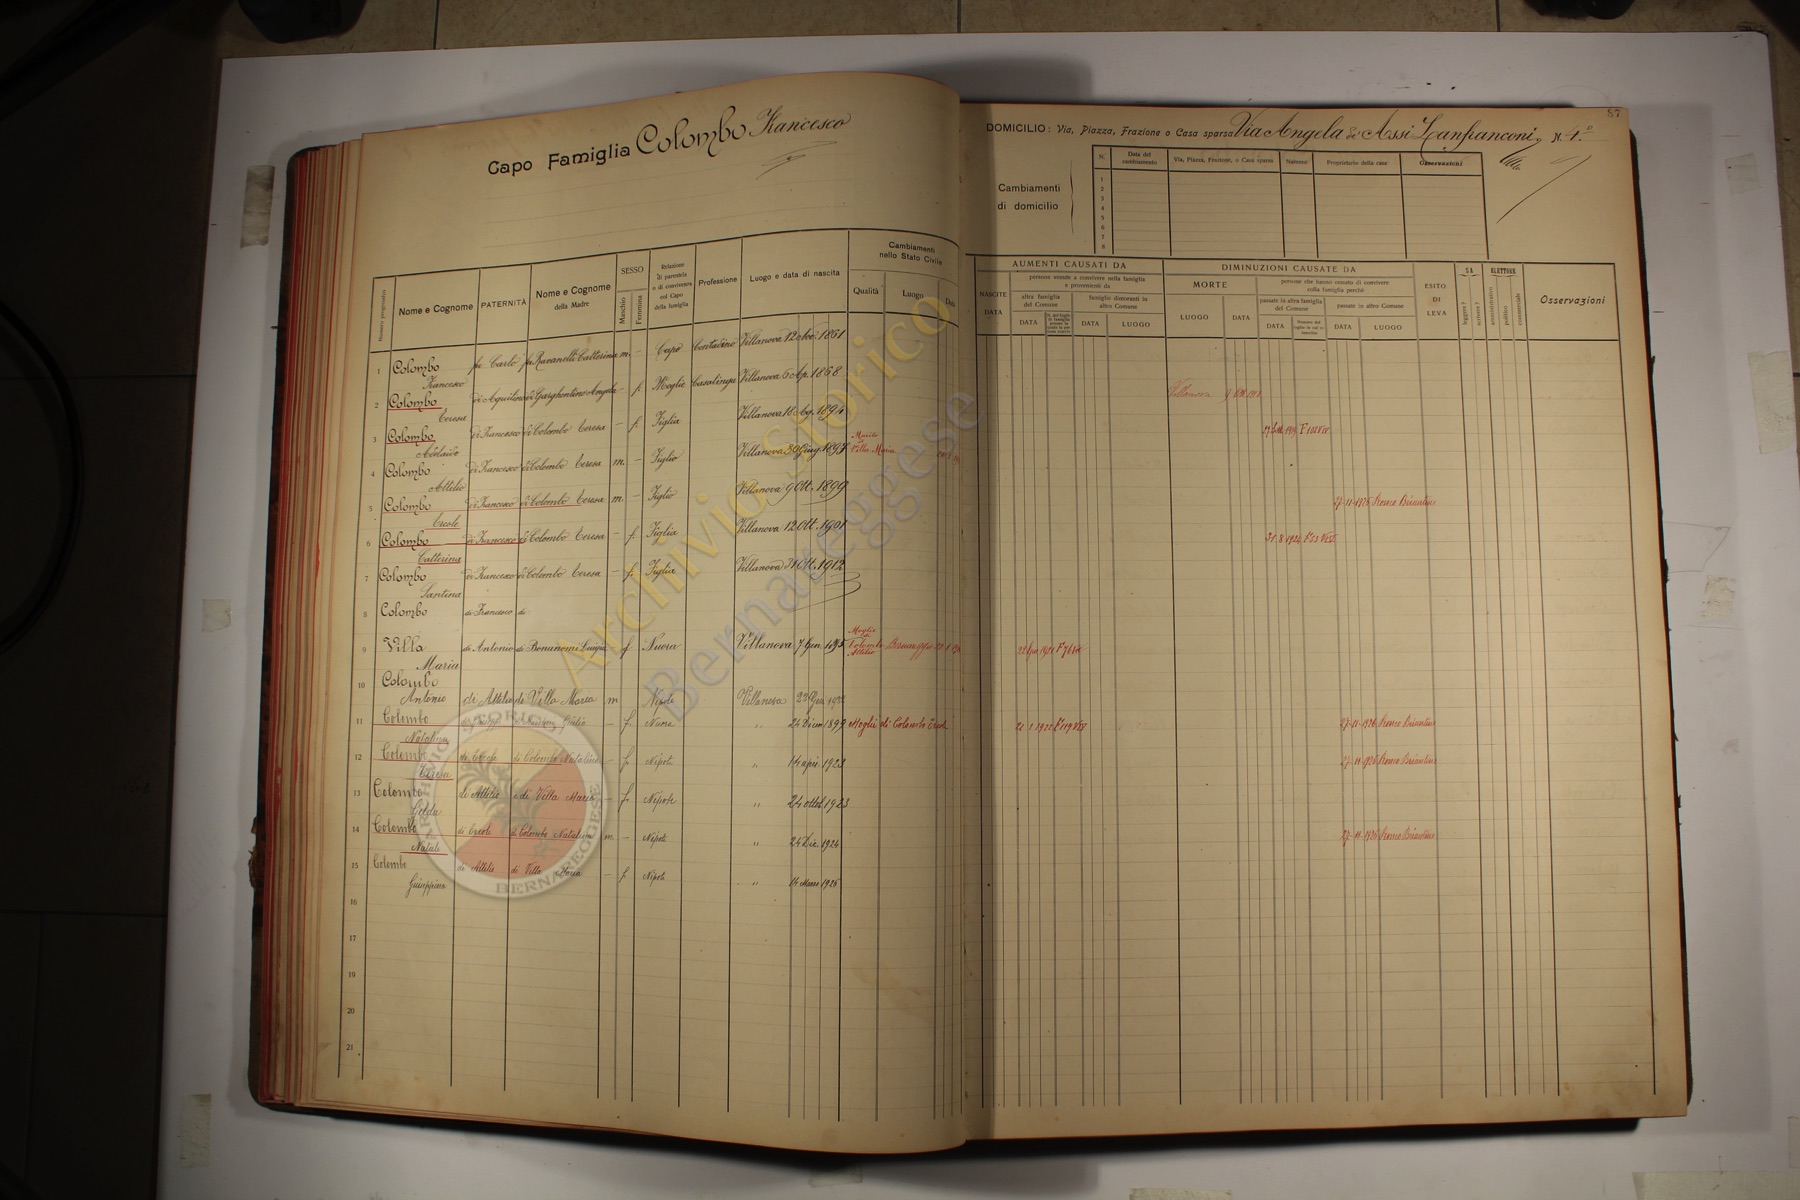 Capo Famiglia Colombo Francesco
87
DOMICILIO: Via, Piazza, Frazione o Casa sparsa Via Angela de Assi Lanfranconi N. 4
Cambiamenti
di domicilio
N. Data del cambiamento Via, Piazza, Frazione, o Casa sparsa Numero Proprietario della casa Osservazioni
1
2
3
4
5
6
7
8
Numero progressivo Nome e Cognome PATERNITÀ Nome e Cognome della Madre SESSO Maschio Femmina Relazione di parentela o di convivenza col Capo della famiglia Professione Luogo e data di nascita Cambiamenti nello Stato Civile Qualità Luogo Data
NASCITE DATA AUMENTI CAUSATI DA persone venute a convivere nella famiglia e provenienti da altra famiglia del Comune DATA famiglie dimoranti in altro Comune DATA LUOGO
DIMINUZIONI CAUSATE DA MORTE LUOGO DATA persone che hanno cessato di convivere colla famiglia perchè passate in altra famiglia del Comune DATA passate in altro Comune DATA LUOGO
ESITO DI LEVA SA leggere? scrivere? ELETTORE amministrativo politico commerciale Osservazioni
1 Colombo Francesco fu Carlo fu Ravanelli Catterina m. – Capo Contadino Villanova 12 1861
2 Colombo Teresa di Aquilino di Garghentino Angela – f. Moglie Casalinga Villanova 6 Ap. 1868 Villanova
3 Colombo Adelaide di Francesco di Colombo Teresa – f. Figlia Villanova 18 1894 F 102
4 Colombo Attilio di Francesco di Colombo Teresa m. – Figlio Villanova 30 Giug. 1897 Marito di Villa Maria
5 Colombo Ercole di Francesco di Colombo Teresa m. – Figlio Villanova 9 Ott. 1899 27-11-1926 Ronco Briantino
6 Colombo Catterina di Francesco di Colombo Teresa – f. Figlia Villanova 12 Ott. 1901 31.8.1924
7 Colombo Santina di Francesco di Colombo Teresa – f. Figlia Villanova 31 Ott. 1912
8 Colombo di Francesco di
9 Villa Maria di Antonio di Bonanomi – f Nuora Villanova 7 Gen. 1895 Moglie di Colombo Attilio Bernareggio 1921
10 Colombo Antonio di Attilio di Villa Maria m Nipote Villanova 22 1922
11 Colombo Natalina Giulia – f. Nuora " 24 Dicem 1899 Moglie di Colombo Ercole 21 1 1922 27-11-1926 Ronco Briantino
12 Colombo Teresa di Ercole di Colombo Natalina – f. Nipote " 14 apri 1923 27-11-1926 Ronco Briantino
13 Colombo di Attilio di Villa Maria – f. Nipote " 24 ottob 1923
14 Colombo Natale di Ercole di Colombo Natalina m. – Nipote " 24 Dic. 1924 27-11-1926 Ronco Briantino
15 Colombo Giuseppina di Attilio di Villa Maria – f. Nipote " 14 Marzo 1926
16
17
18
19
20
21
Archivio Storico
Bernareggese
ARCHIVIO STORICO
BERNAREGGESE